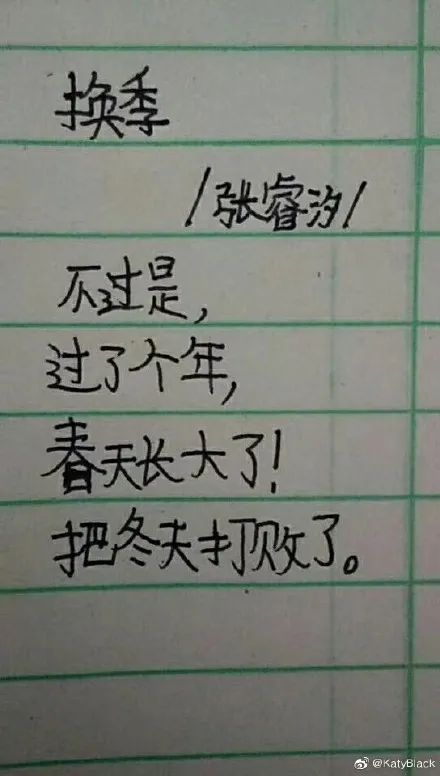 换季
/张睿汐/
不过是，
过了个年，
春天长大了！
把冬天打败了。
@KatyBlack